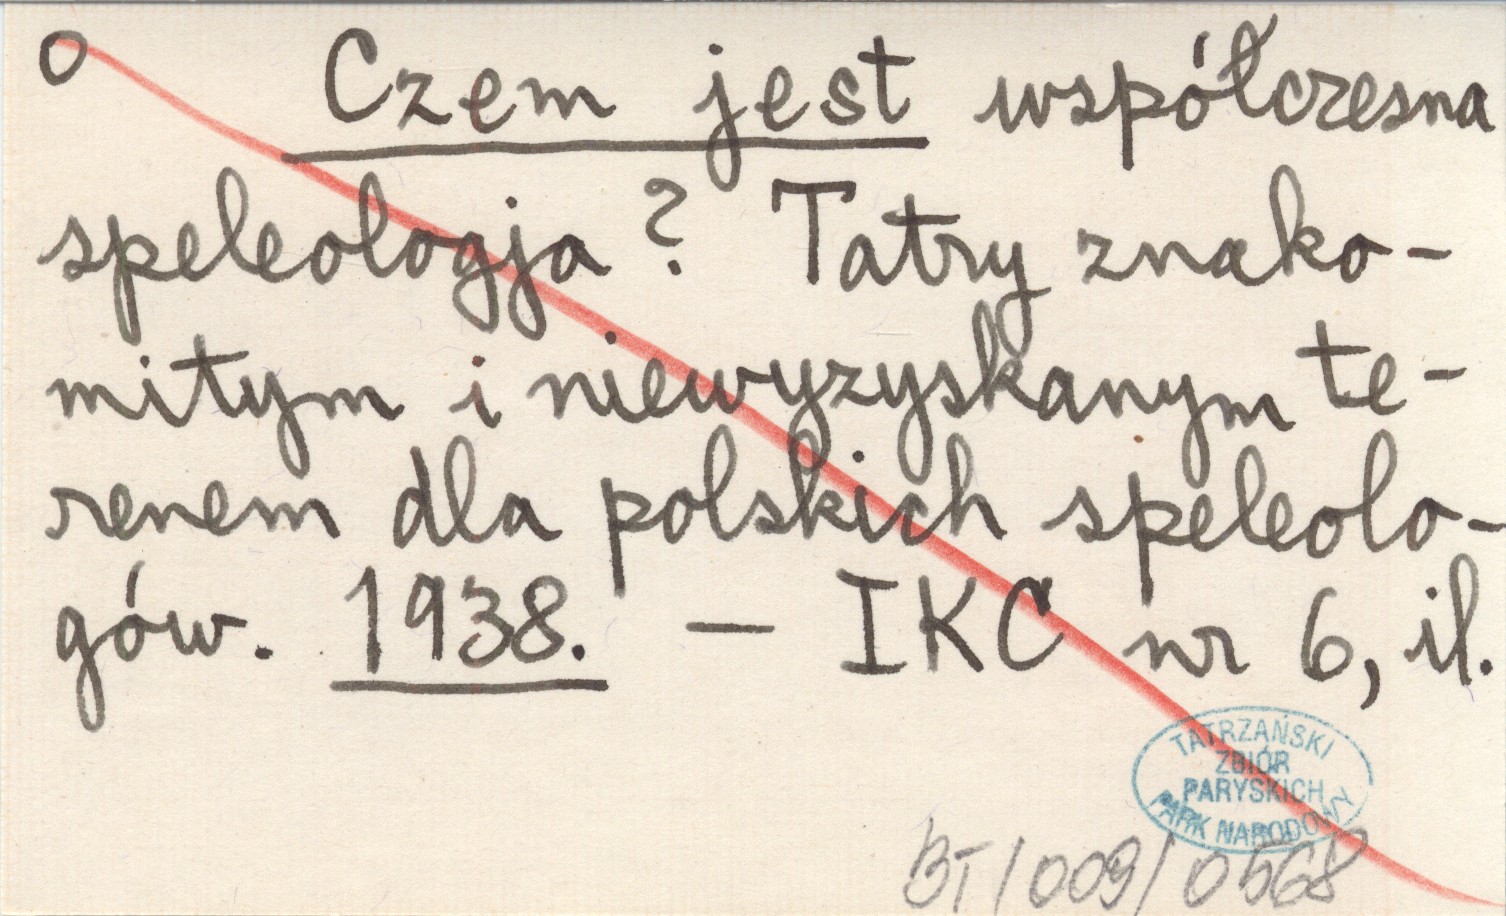 O Czem jest współczesna
speleologja? Tatry znako-
mitym i niewyzyskanym te-
renem dla polskich speleolo-
gów. 1938. — IKC nr 6, il.
TATRZAŃSKI
ZBIÓR
PARYSKICH
PARK NARODOWY
BT/009/0568